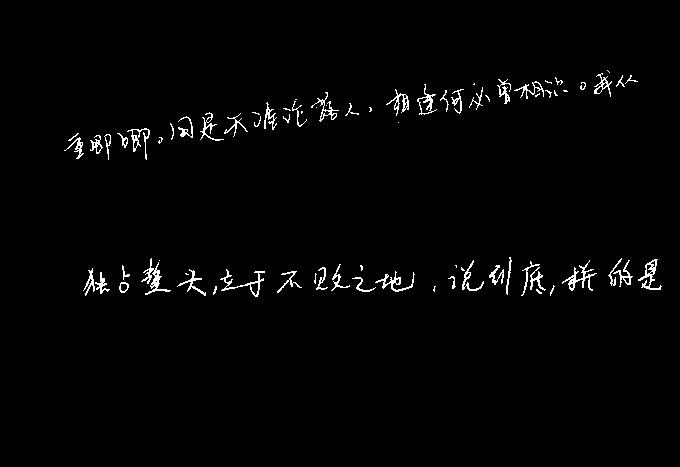 重唧唧。同是天涯沦落人，相逢何必曾相识。我从
独占鳌头，立于不败之地，说到底，拼的是